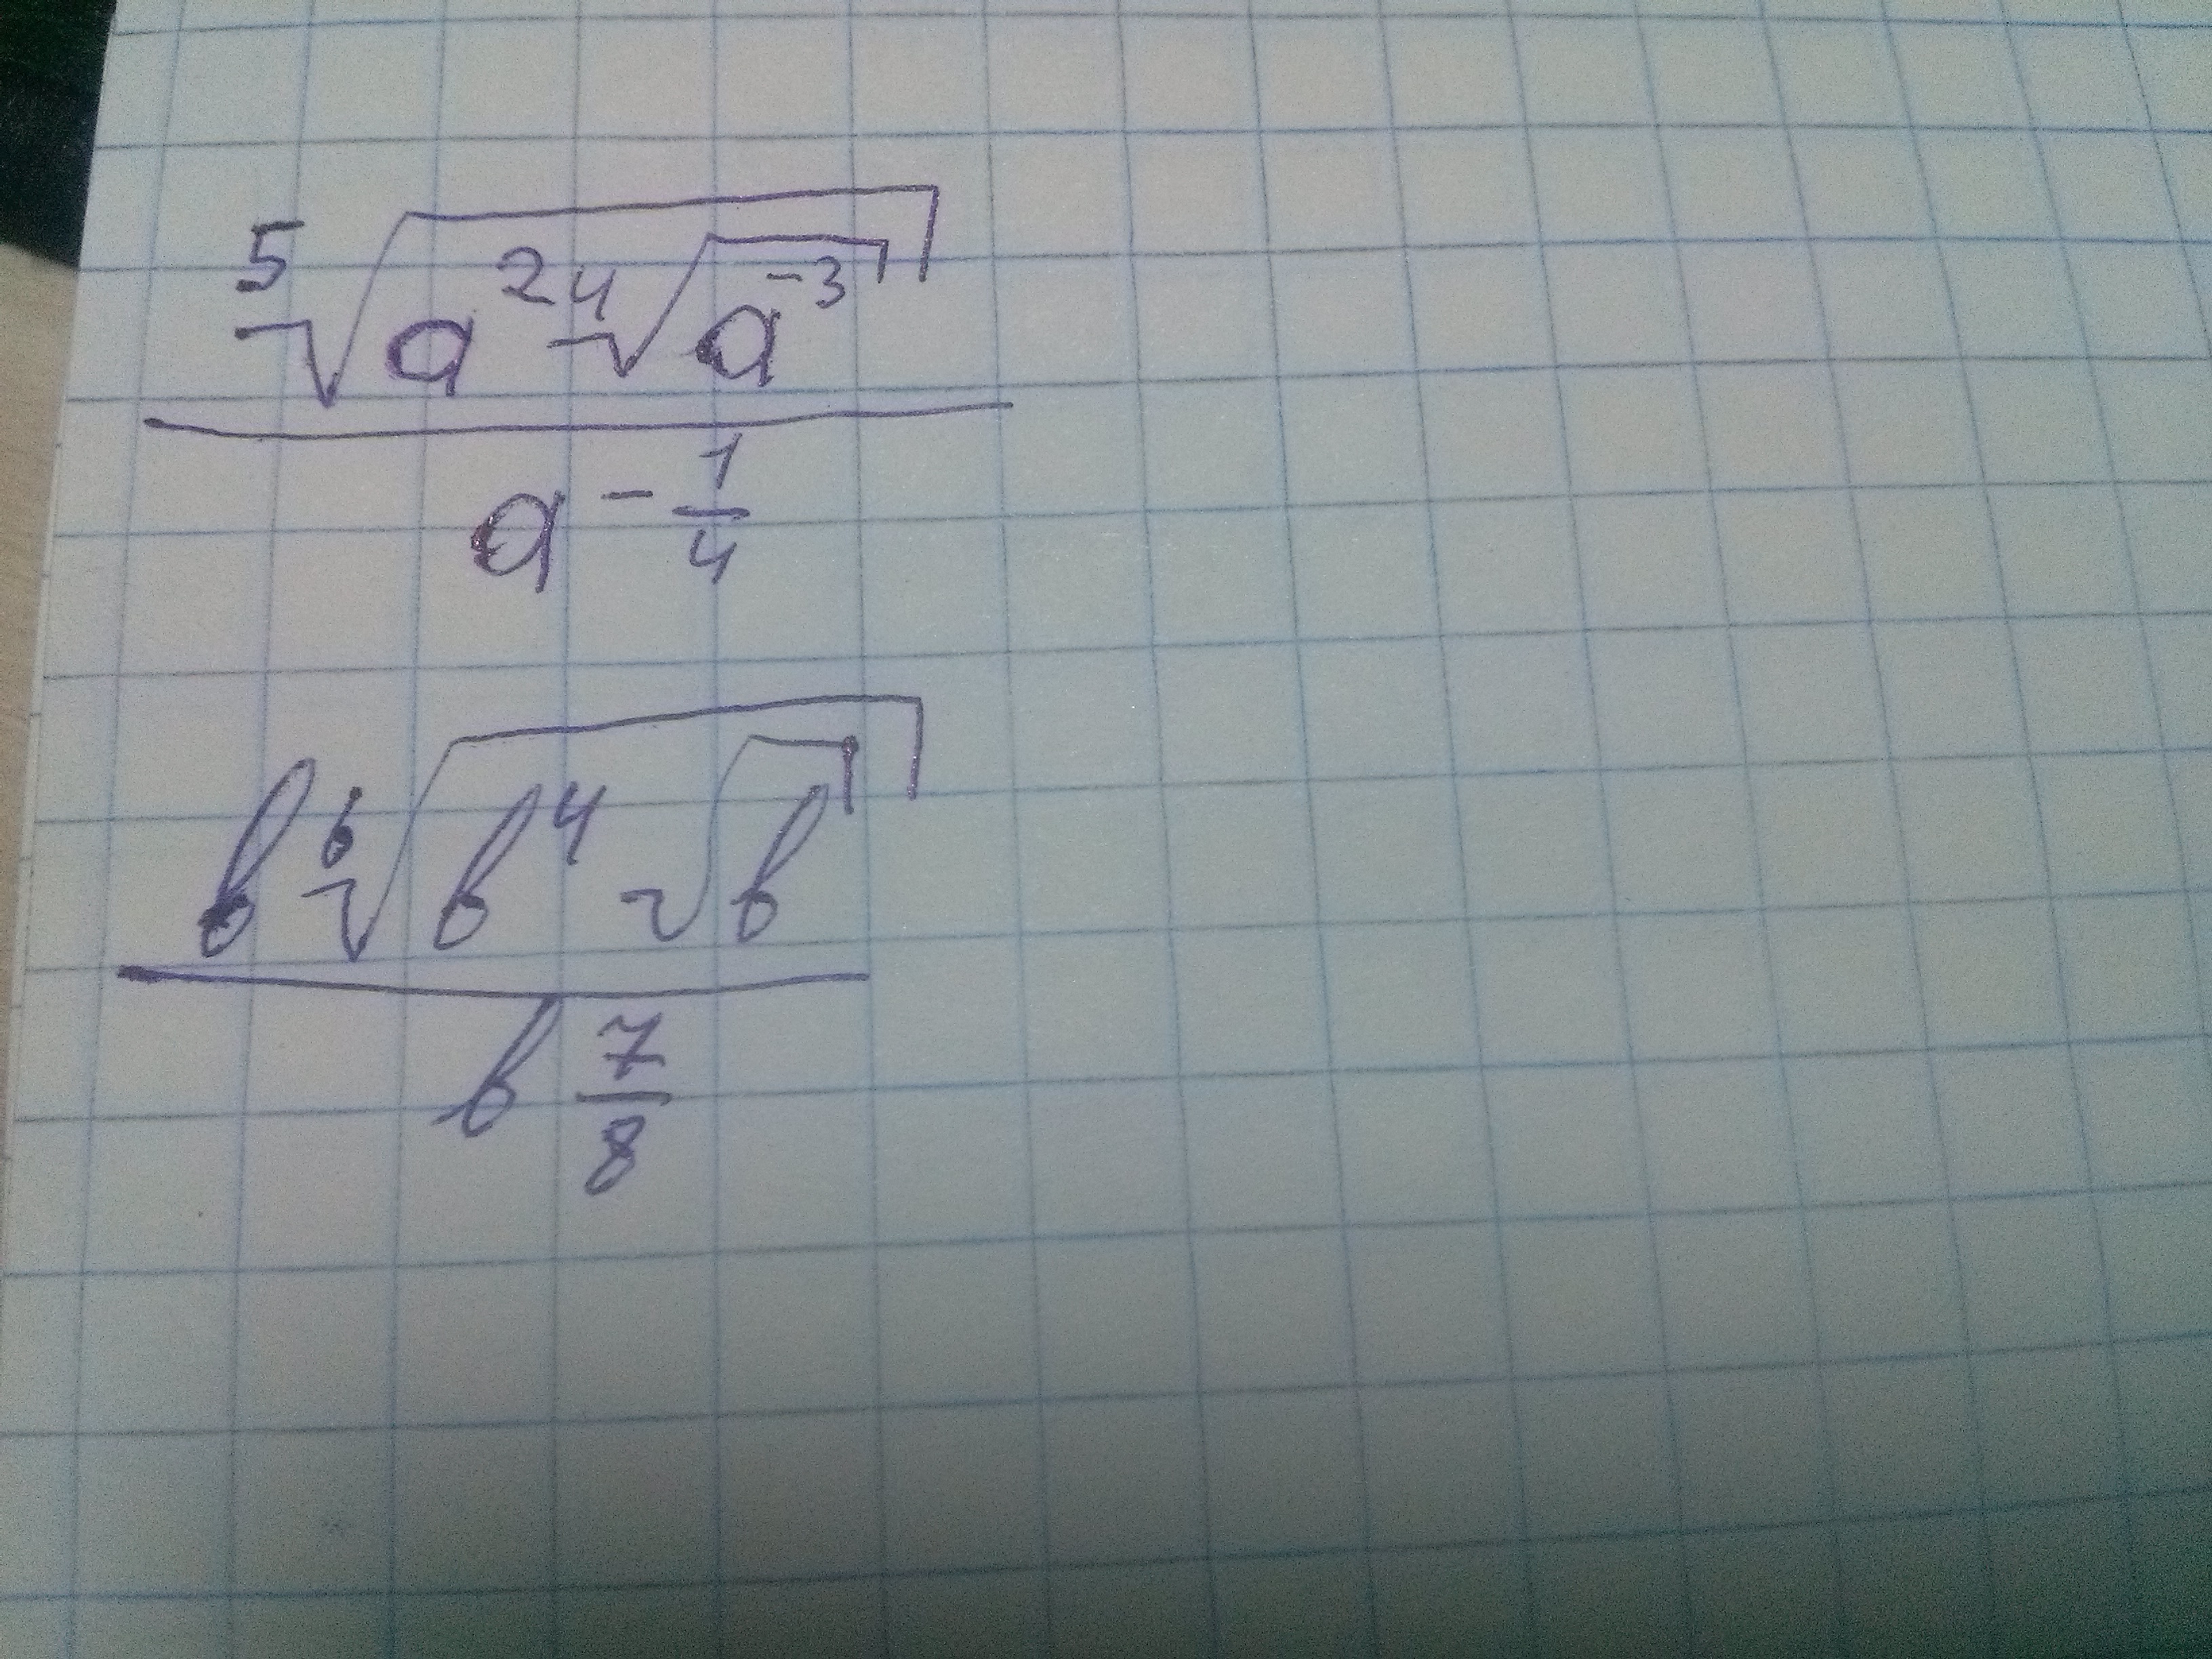 ⁵√(a² ⁴√(a⁻³))
a^(-1/4)
b ⁶√(b⁴ √b)
b^(7/8)